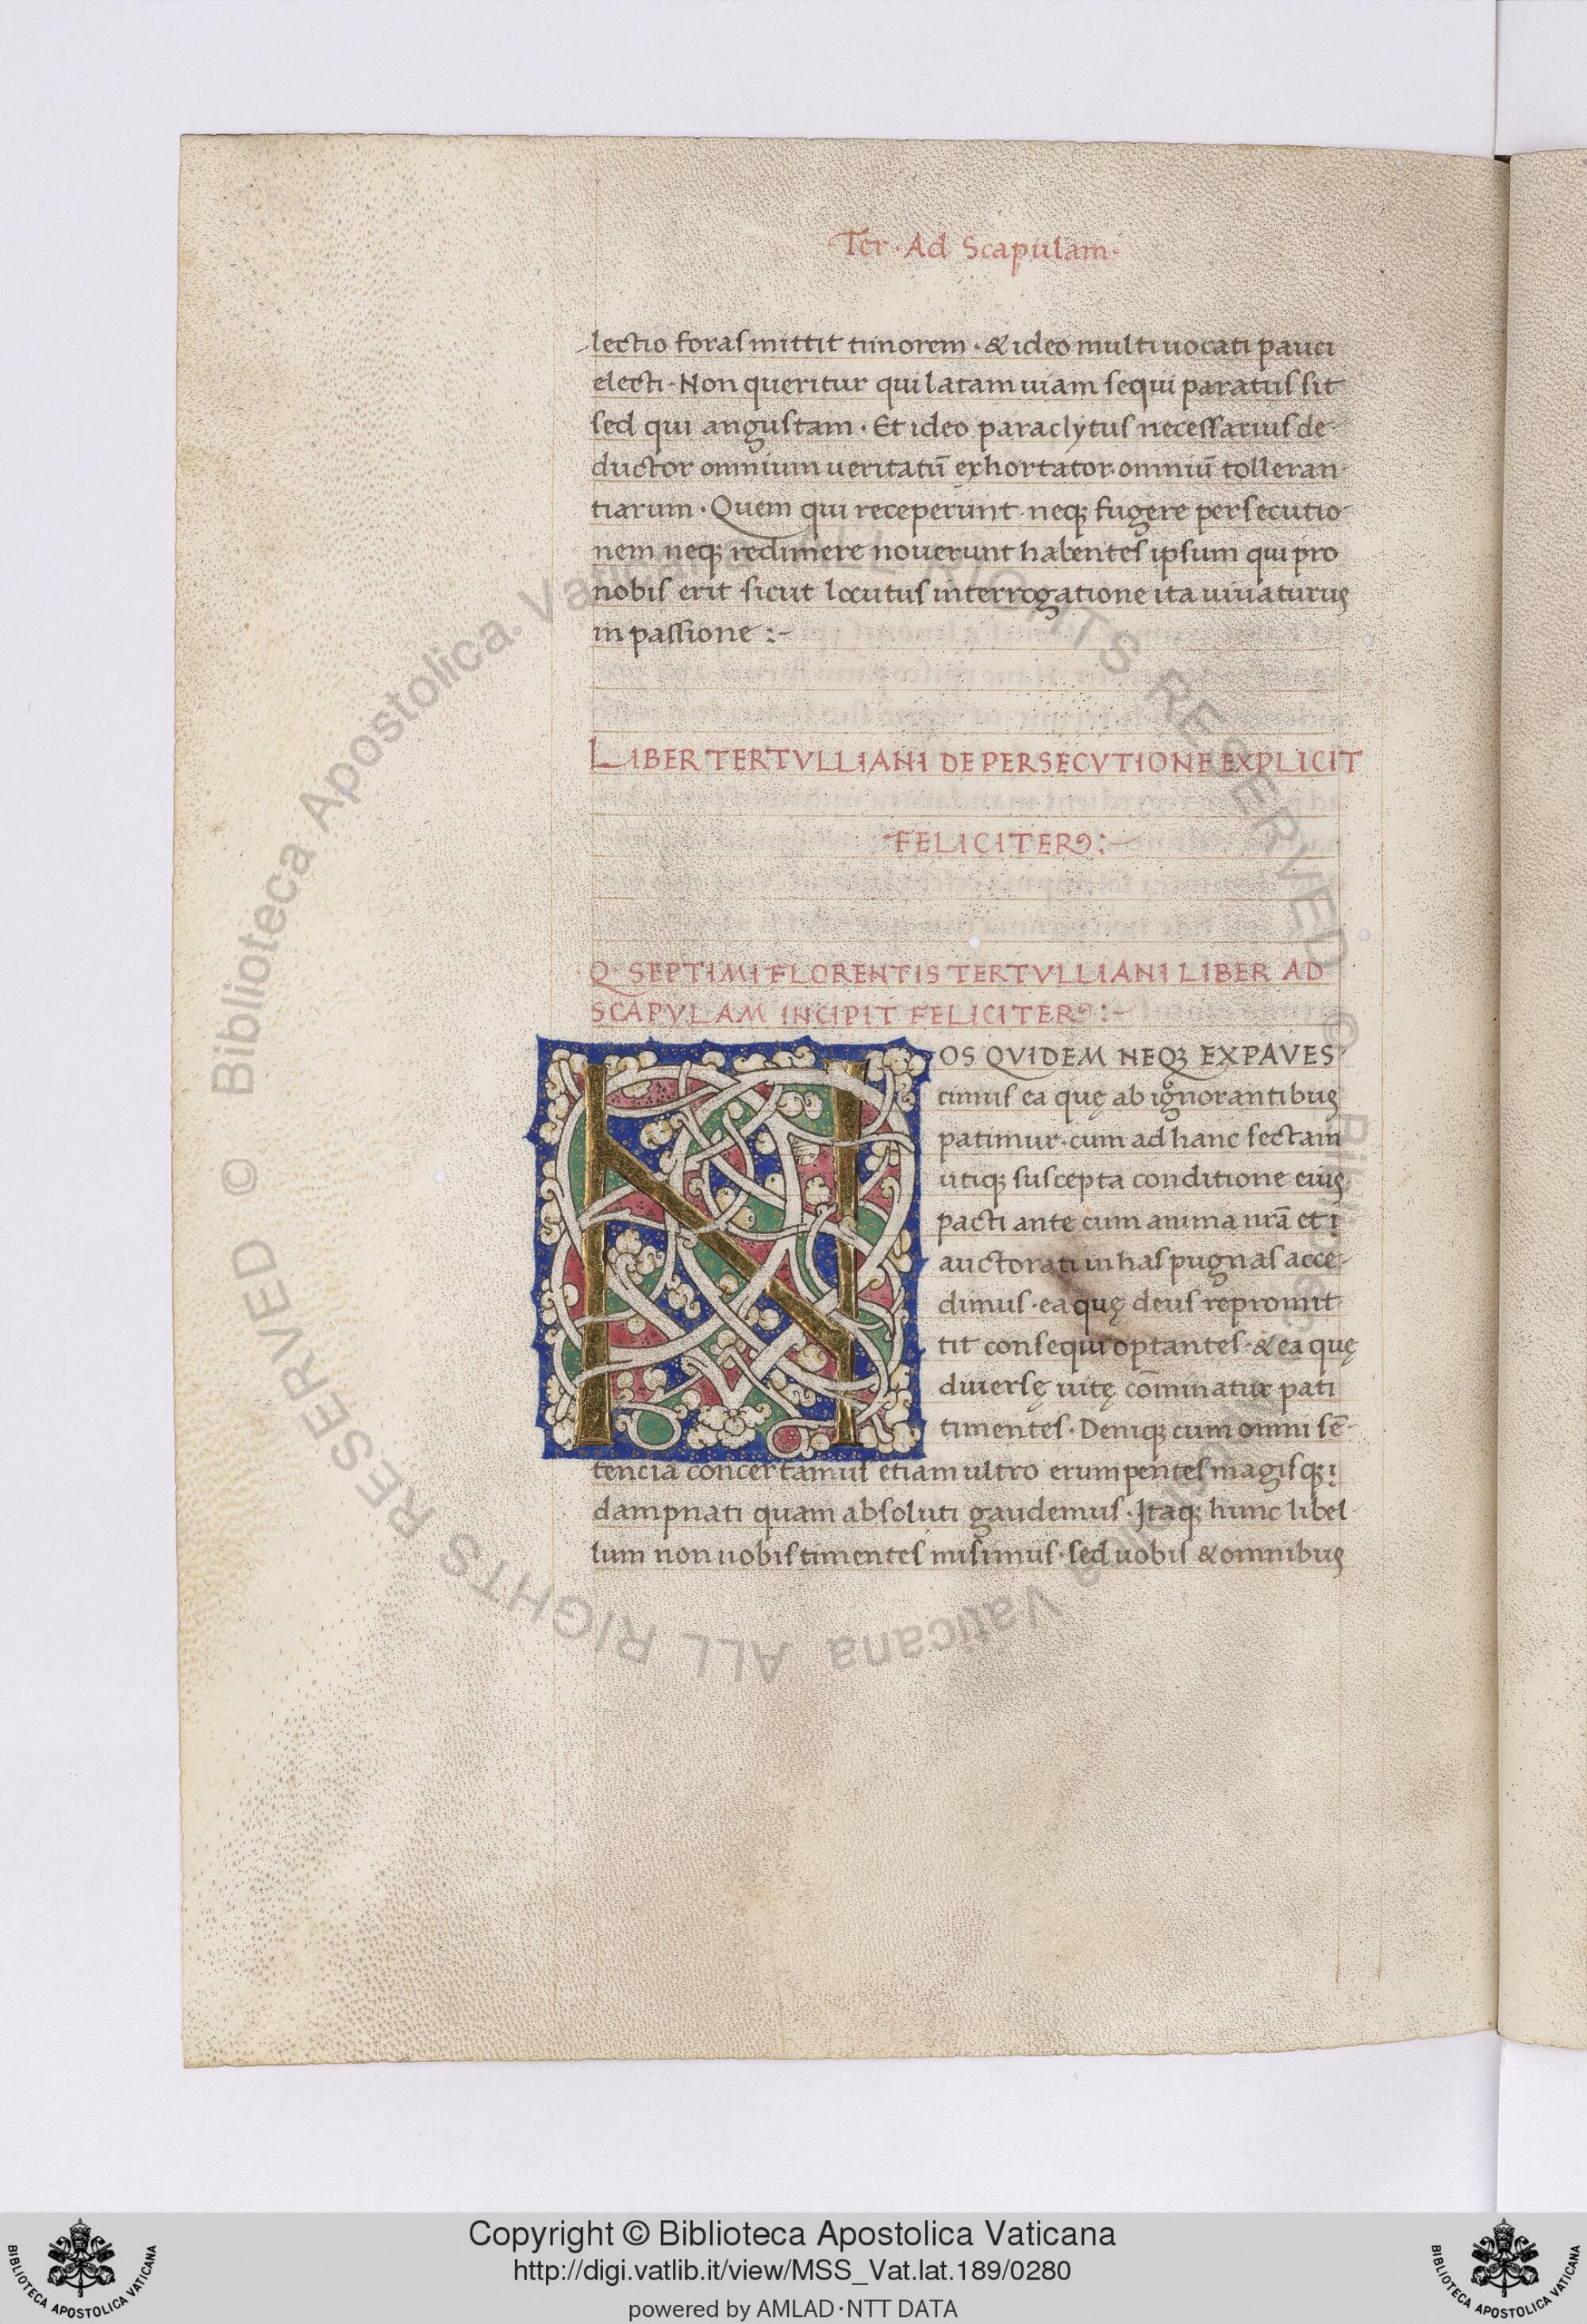 Ter · Ad Scapulam ·
lectio foras mittit timorem · & ideo multi uocati pauci
electi · Non queritur qui latam uiam sequi paratus sit
sed qui angustam · Et ideo paraclytus necessarius de-
ductor omnium ueritatū exhortator omniū tolleran-
tiarum · Quem qui receperunt neq; fugere persecutio-
nem neq; redimere nouerunt habentes ipsum qui pro
nobis erit sicut locutus interrogatione ita uiuaturus
in passione :-
LIBER TERTVLLIANI DE PERSECVTIONE EXPLICIT
FELICITER :-
Q SEPTIMI FLORENTIS TERTVLLIANI LIBER AD
SCAPVLAM INCIPIT FELICITER :-
NOS QVIDEM NEQ; EXPAVES-
cimus ea quę ab ignorantibus
patimur · cum ad hanc sectam
utiq; suscepta conditione eius
pacti ante cum anima nrā et i
auctorati in has pugnas acce-
dimus · ea quę deus repromit-
tit consequi optantes · & ea quę
diuersę uitę cōminatur pati
timentes · Deniq; cum omni sē-
tencia concertamus etiam ultro erumpentes magisq; i
dampnati quam absoluti gaudemus · Itaq; hunc libel-
lum non nobis timentes misimus · sed uobis & omnibus
© Biblioteca Apostolica Vaticana ALL RIGHTS RESERVED
© Biblioteca Apostolica Vaticana ALL RIGHTS RESERVED
Copyright © Biblioteca Apostolica Vaticana
http://digi.vatlib.it/view/MSS_Vat.lat.189/0280
powered by AMLAD · NTT DATA
BIBLIOTECA APOSTOLICA VATICANA
BIBLIOTECA APOSTOLICA VATICANA